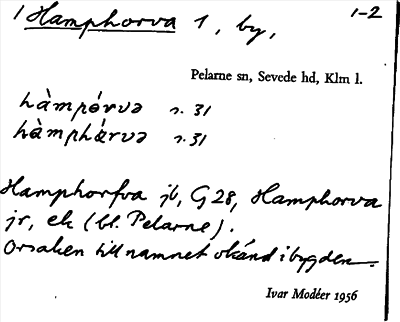 1 Hamphorva 1, by, 1-2
Pelarne sn, Sevede hd, Klm l.
hàmpórvə r. 31
hàmphárvə r. 31
Hamphorfva jb, G28, Hamphorva
jr, ek (bl. Pelarne).
Orsaken till namnet okänd i bygden.
Ivar Modéer 1956